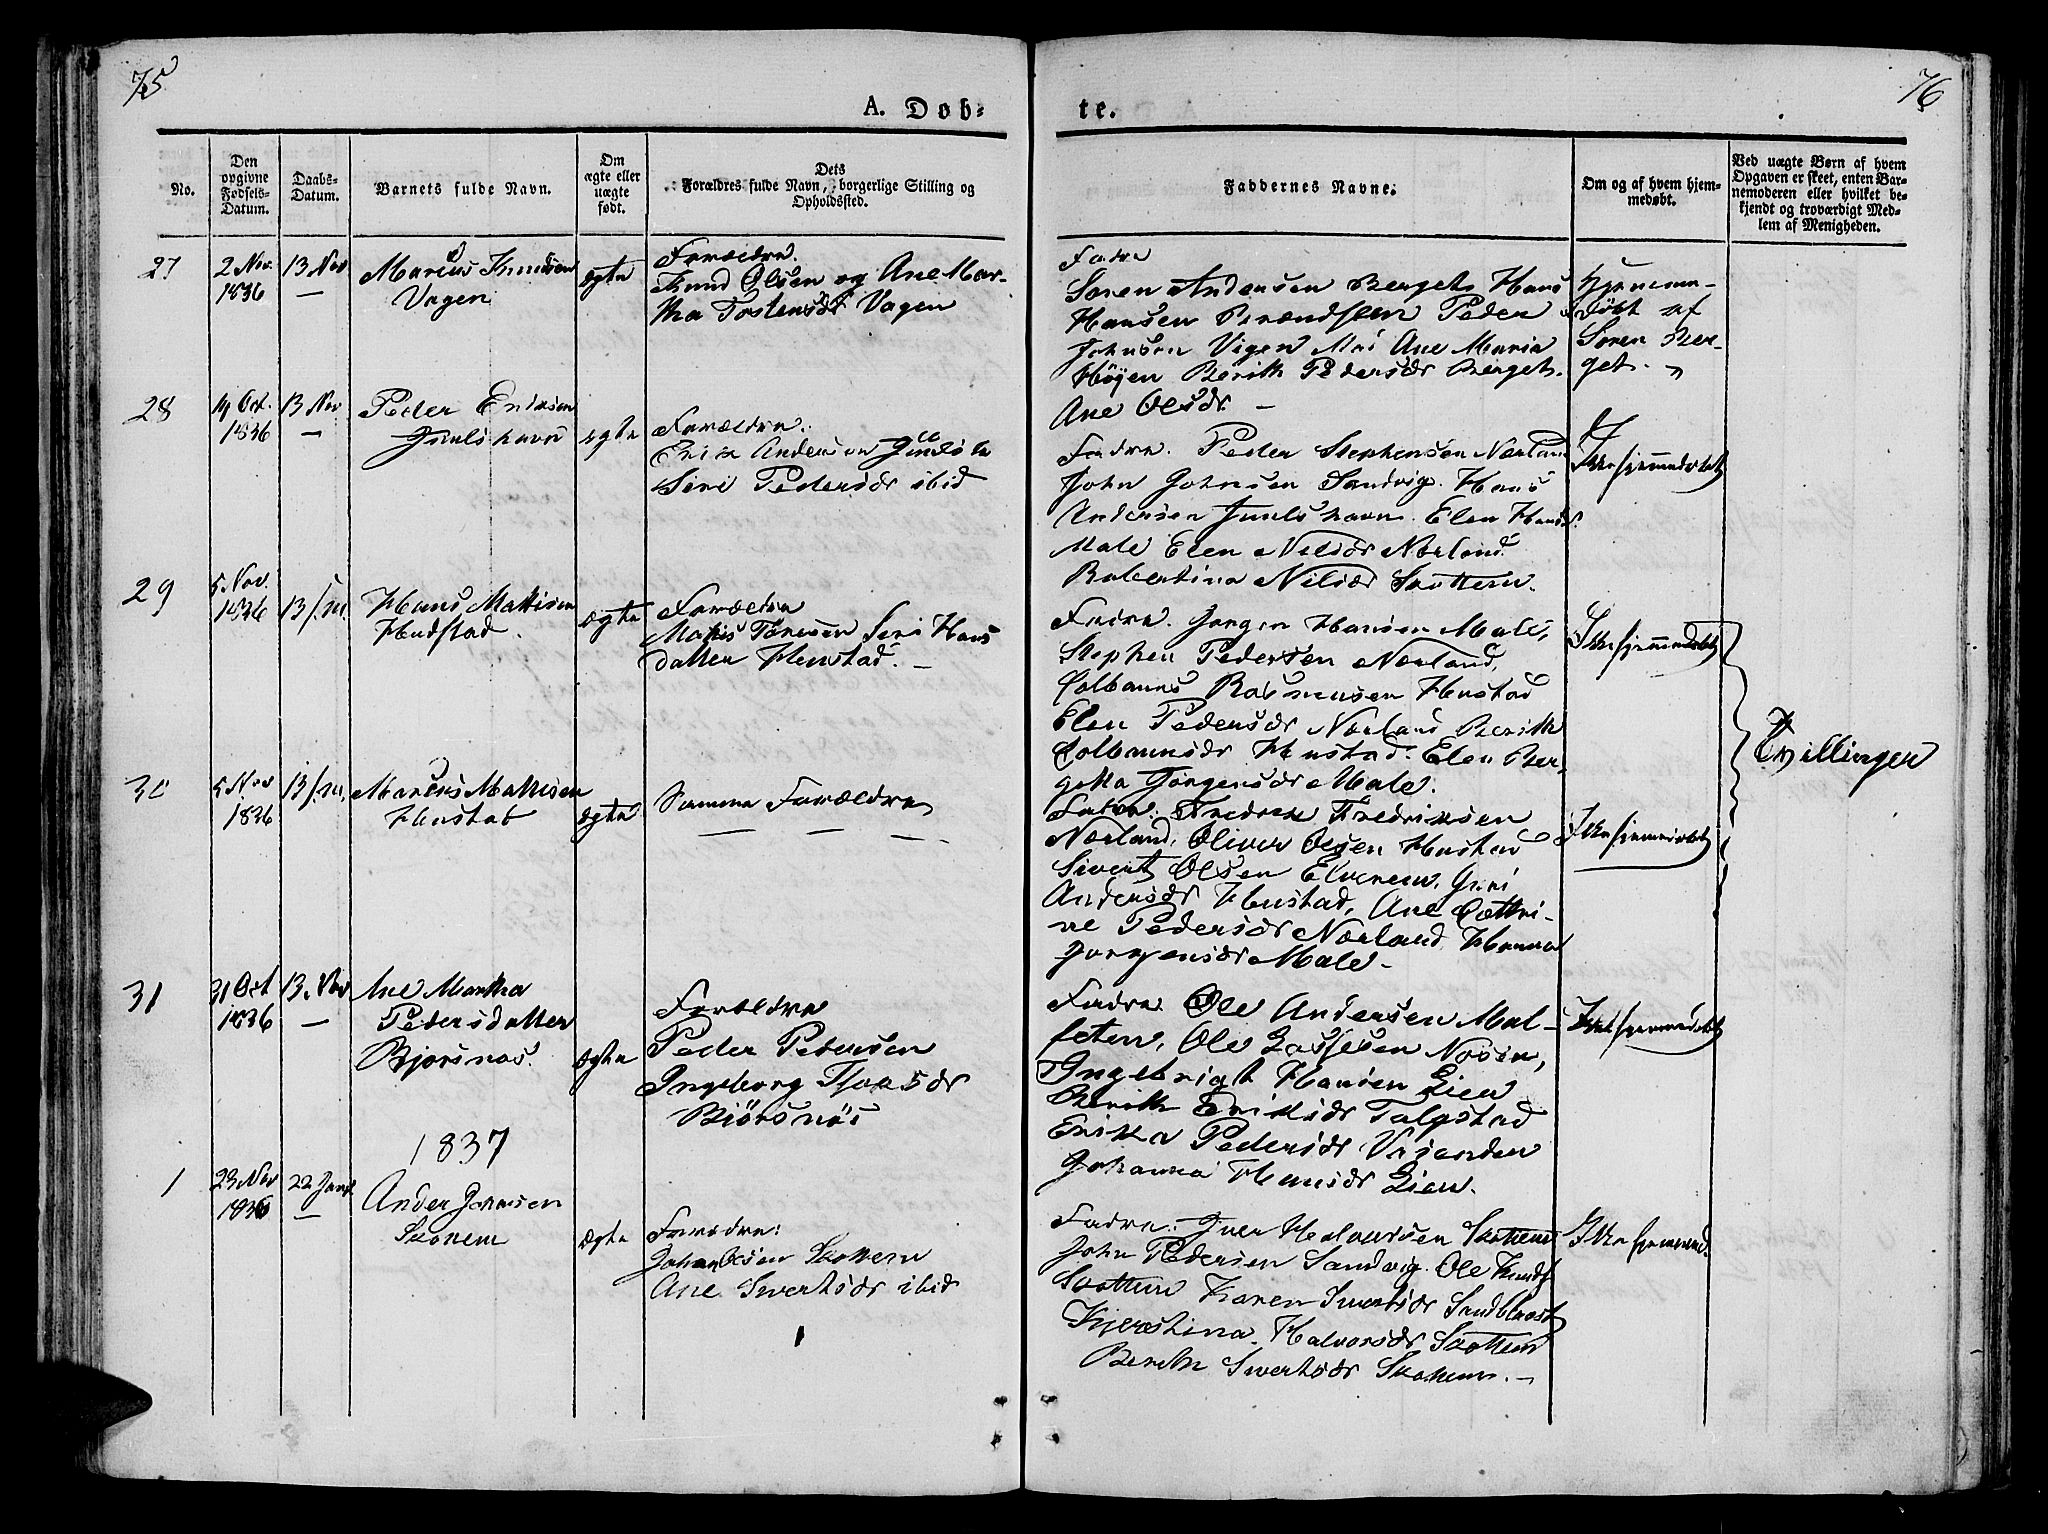 75
76
A. Døb-
te.
No.
Den opgivne Fødsels-Datum.
Daabs-Datum.
Barnets fulde Navn.
Om ægte eller uægte født.
Dets Forældres fulde Navn, borgerlige Stilling og Opholdssted.
Faddernes Navne.
Om og af hvem hjem-medøbt.
Ved uægte Børn af hvem Opgaven er skeet, enten Bar-nemoderen eller hvilket be-kjendt og troværdigt Med-lem af Menigheden.
27
2 Nov. 1836
13 Nov
Marius Knudsen
Vagen
ægte
Forældre.
Knud Olsen og Ane Mar-
tha Tostensdr Vagen
Fadre
Søren Andersen Berget Hans
Hansen Peder
Johnsen Vigen Ane Maria
Høyen Berith Pedersdr Berget.
Ane Olsdr. –
Hjemme-
døbt af
Søren Ber-
get.
28
14 Oct. 1836
13 Nov
Peder Eriksen
Juulshavn
ægte
Forældre.
Erik Andersen
Siri Pedersdr ibid
Fadre. Peder Stephensen Nærland
John Johnsen Sandvig. Hans
Andersen Juulshavn. Elen Hansdr.
Male Elen Nilsdr Nærland
Robertina Nilsdr Skottem.
Ikke hjemmedøbt
29
5 Nov. 1836
13/11.
Hans Mattisen
Hudstad.
ægte
Forældre
Mattis Tøresen Siri Hans
datter Henstad. –
Fadre. Jørgen Hansen Male,
Stephen Pedersen Nærland,
Colbanus Rasmusen Hustad
Elen Pedersdr Nærland Berith
Colbannsdr Hustad. Elen Ber-
getta Jørgensdr Male.
Ikke hjemmedøbt
Tvillinger
30
5 Nov 1836
13/11.
Mattisen
Hustad
ægte
Samme Forældre
Fadre. Fredrik Fredriksen
Nærland, Oliver Olsen Hustad
Sivert Olsen Elvenem, Guri
Andersdr Hustad, Ane Cathri-
ne Pedersdr Nærland Hanna
Jørgensdr Male –
Ikke hjemmedøbt
31
31 Oct 1836
13. Nov
Ane Martha
Pedersdatter
Bjørsnøs.
ægte
Forældre
Peder Pedersen
Ingeborg
Biörsnös
Fadre. Ole Andersen Mal-
feten, Ole Lassesen Nosen,
Ingebrigt Hansen Lien
Berith Eriksdr Talgstad
Erika Pedersdr
Johanna Hansdr Lien.
Ikke hjemmedøbt
1837
1
23 Nov 1836
22 Janr
Ander Johansen
Skottem
ægte
Forældre:
Johan Olsen Skottem
Ane Sivertsdr ibid
Fadre. Iver Halvorsen Skottem
John Pedersen Sandvig. Ole Knuds
Skottem Karen Sivertsdr Sandblaast
Kjerstina. Halvorsdr Skottem
Berith Sivertsdr Skottem. –
Ikke hjemmed.